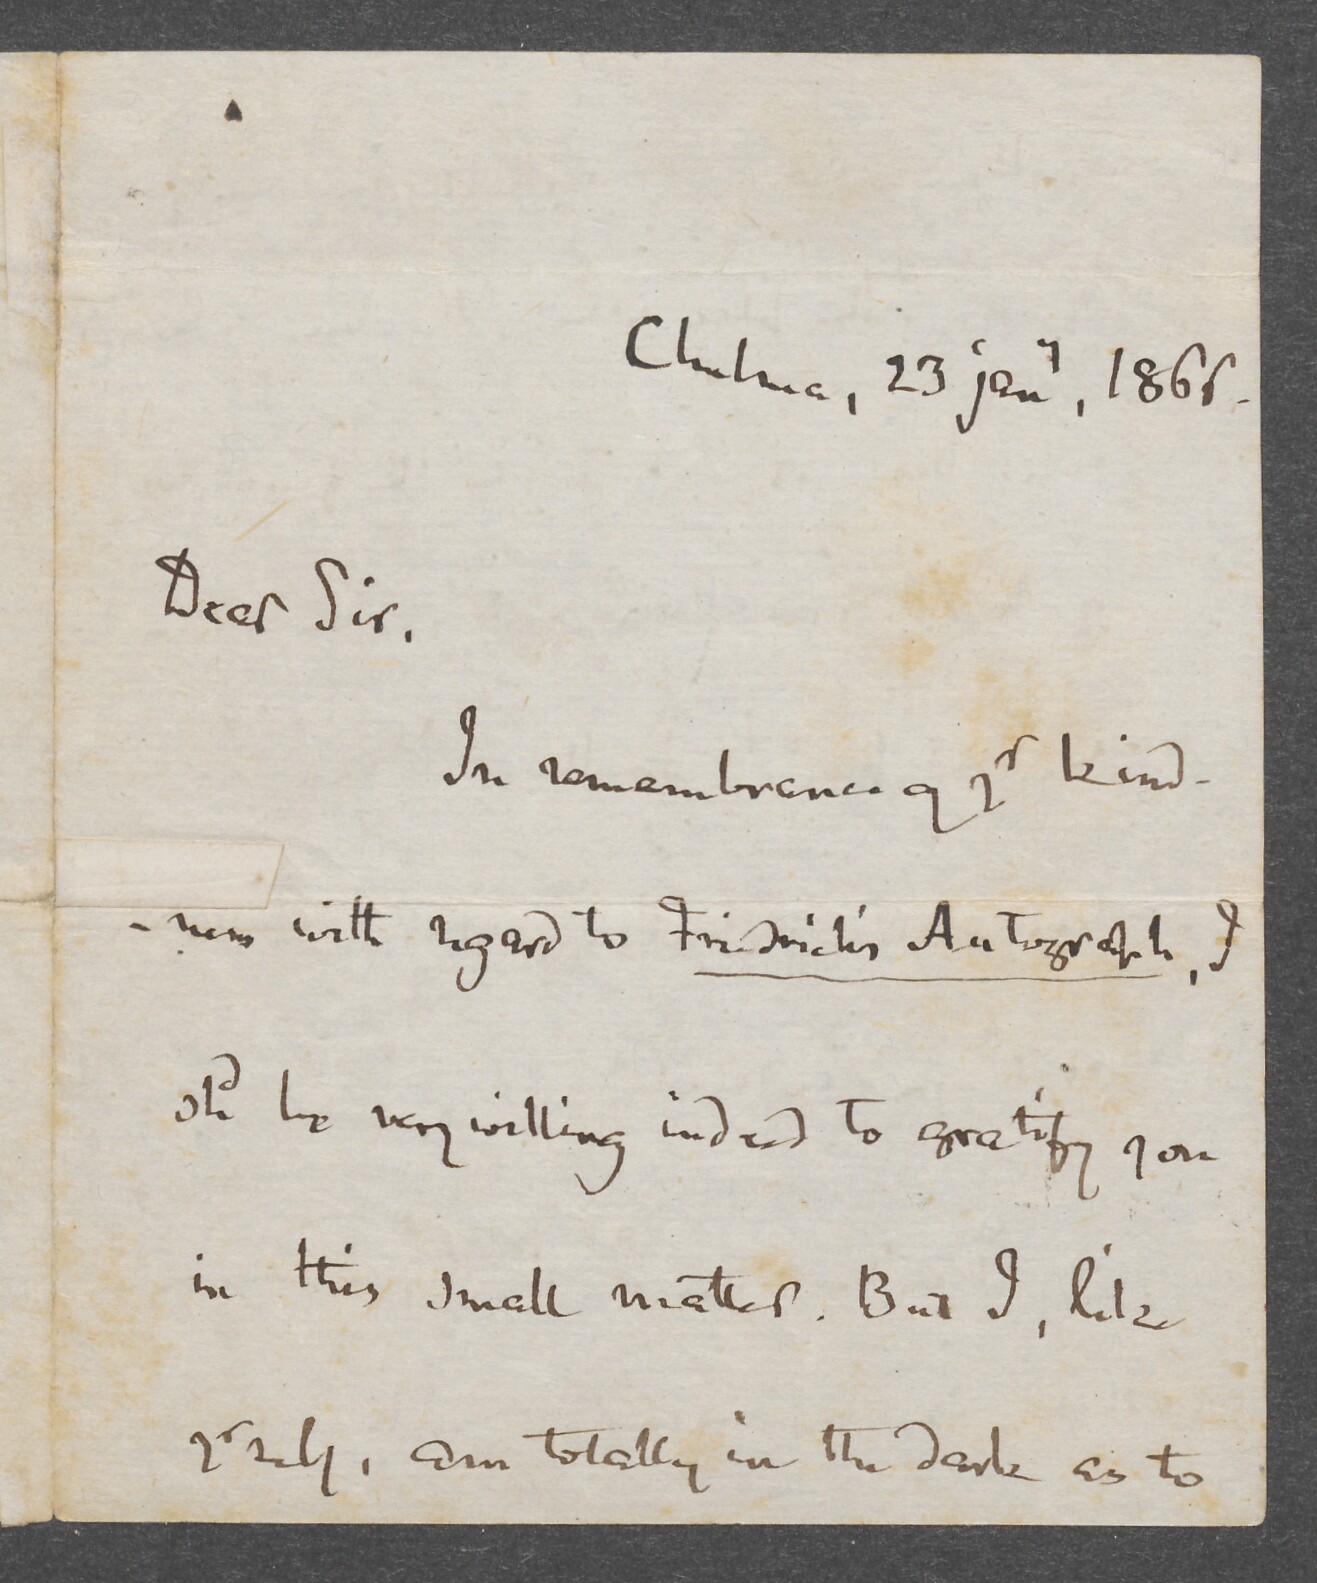 Chelsea, 23 jany, 1866.
Dear Sir,
In remembrance of yr kind-
-ness with regard to Friedrich's Autograph, I
shd be very willing indeed to gratify you
in this small matter. But I, like
yrself, am totally in the dark as to